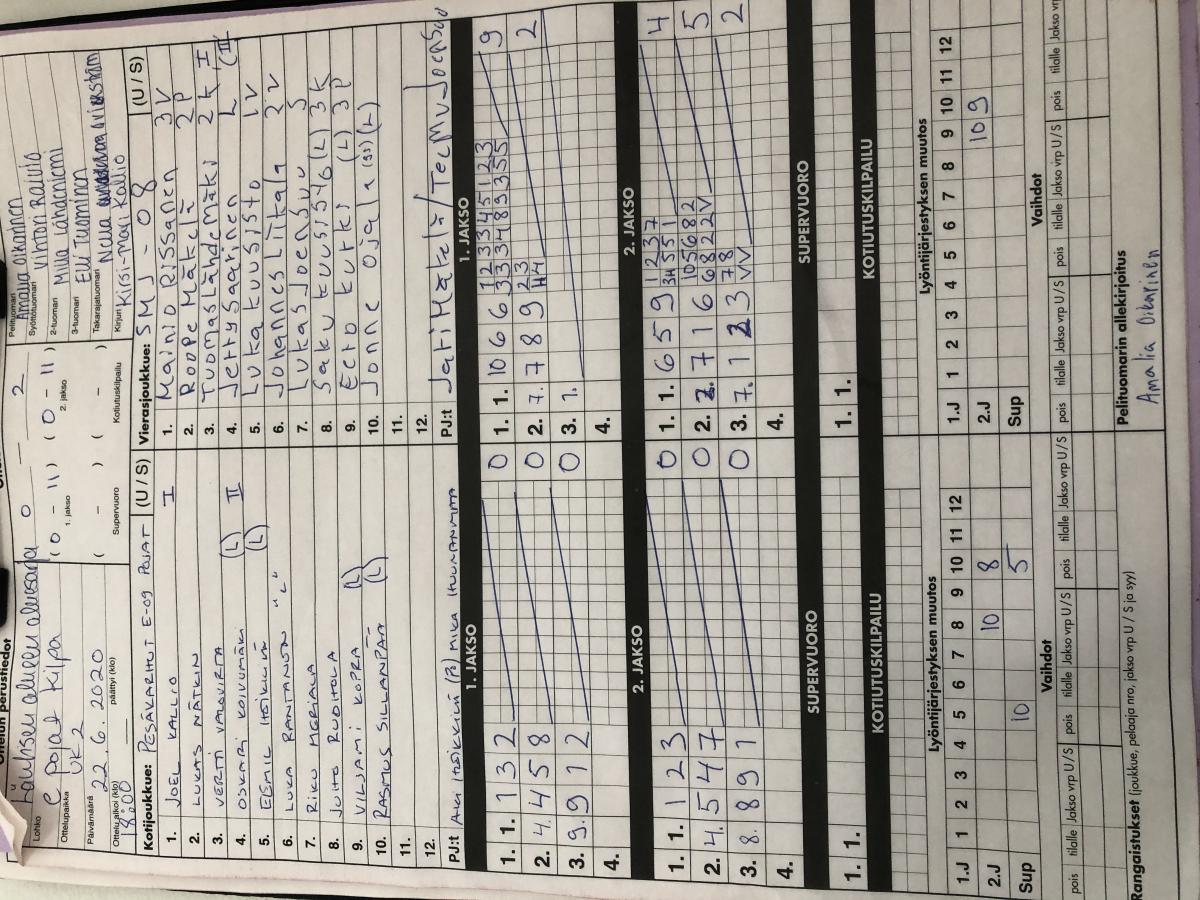 Ottelun perustiedot
Lohko
e pojat kilpa
Ottelupaikka
UK2
Päivämäärä
22.6.2020
Ottelu alkoi (klo)
18:00
päättyi (klo)
0 – 2
(0 – 11) (0 – 11)
1. jakso 2. jakso
( – ) ( – )
Supervuoro Kotiutuskilpailu
Pelituomari
Amalia Oikarinen
Syöttötuomari
2-tuomari
Milla Lähdeniemi
3-tuomari
Elli Tuominen
Takarajatuomari
Nella
Kirjuri
Kirsi-Marj Kallio
Kotijoukkue: PESÄKARHUT E-09 POJAT (U / S)
1. JOEL KALLIO I
2. LUKAS MÄTKIN
3. VERTTI VALIVIRTA
4. OSKARI KOIVUMÄKI (L) II
5. EEMIL HÖIKKILÄ (L)
6. LUKA RANTANEN "L"
7. RIKU MERIALA
8. JUHO RUOHOLA
9. VILJAMI KOPRA (L)
10. RASMUS SILLANPÄÄ (L)
11.
12.
PJ:t AKI HÖIKKILÄ (PJ) MIKA HUUNANMAA
Vierasjoukkue: SMJ-08 (U / S)
1. Mainio Rissanen 3V
2. Roope Mäkelä 2P
3. Tuomas Lähdemäki 2K I
4. Jerry Saarinen L (III
5. Luka Kuusisto 1V
6. Johannes Litkala 2V
7. Lukas Joensuu S
8. Saku Kuusisto (L) 3K
9. Eero Kurki (L) 3P
10. Jonne Ojala (ss) (L)
11.
12.
PJ:t Jari Mäkelä / Teemu Joensuu
1. JAKSO
1. 1. 1 3 2 0
2. 4. 4 5 8 0
3. 9. 9 1 2 0
4.
1. JAKSO
1. 1. 10 6 6 1 2 3 3 4 5 1 2 3 9
3 3 3 4 8 9 3 5 5
2. 7. 7 8 9 2 3 2
H 4
3. 1.
4.
2. JAKSO
1. 1. 1 2 3 0
2. 4. 5 4 7 0
3. 8. 8 9 1 0
4.
2. JAKSO
1. 1. 6 5 9 1 2 3 7 4
3 H 5 5 1
2. 7. 7 1 6 10 5 6 8 2 5
6 8 2 2 V
3. 7. 1 2 3 7 8 2
V V
4.
SUPERVUORO
1. 1.
SUPERVUORO
1. 1.
KOTIUTUSKILPAILU
KOTIUTUSKILPAILU
Lyöntijärjestyksen muutos
1.J 1 2 3 4 5 6 7 8 9 10 11 12
2.J 10 8
Sup 10 5
Lyöntijärjestyksen muutos
1.J 1 2 3 4 5 6 7 8 9 10 11 12
2.J 10 9
Sup
Vaihdot
pois tilalle Jakso vrp U/S pois tilalle Jakso vrp U/S pois tilalle Jakso vrp U/S
Vaihdot
pois tilalle Jakso vrp U/S pois tilalle Jakso vrp U/S pois tilalle Jakso vrp
Rangaistukset (joukkue, pelaaja nro, jakso vrp U / S ja syy)
Pelituomarin allekirjoitus
Amalia Oikarinen